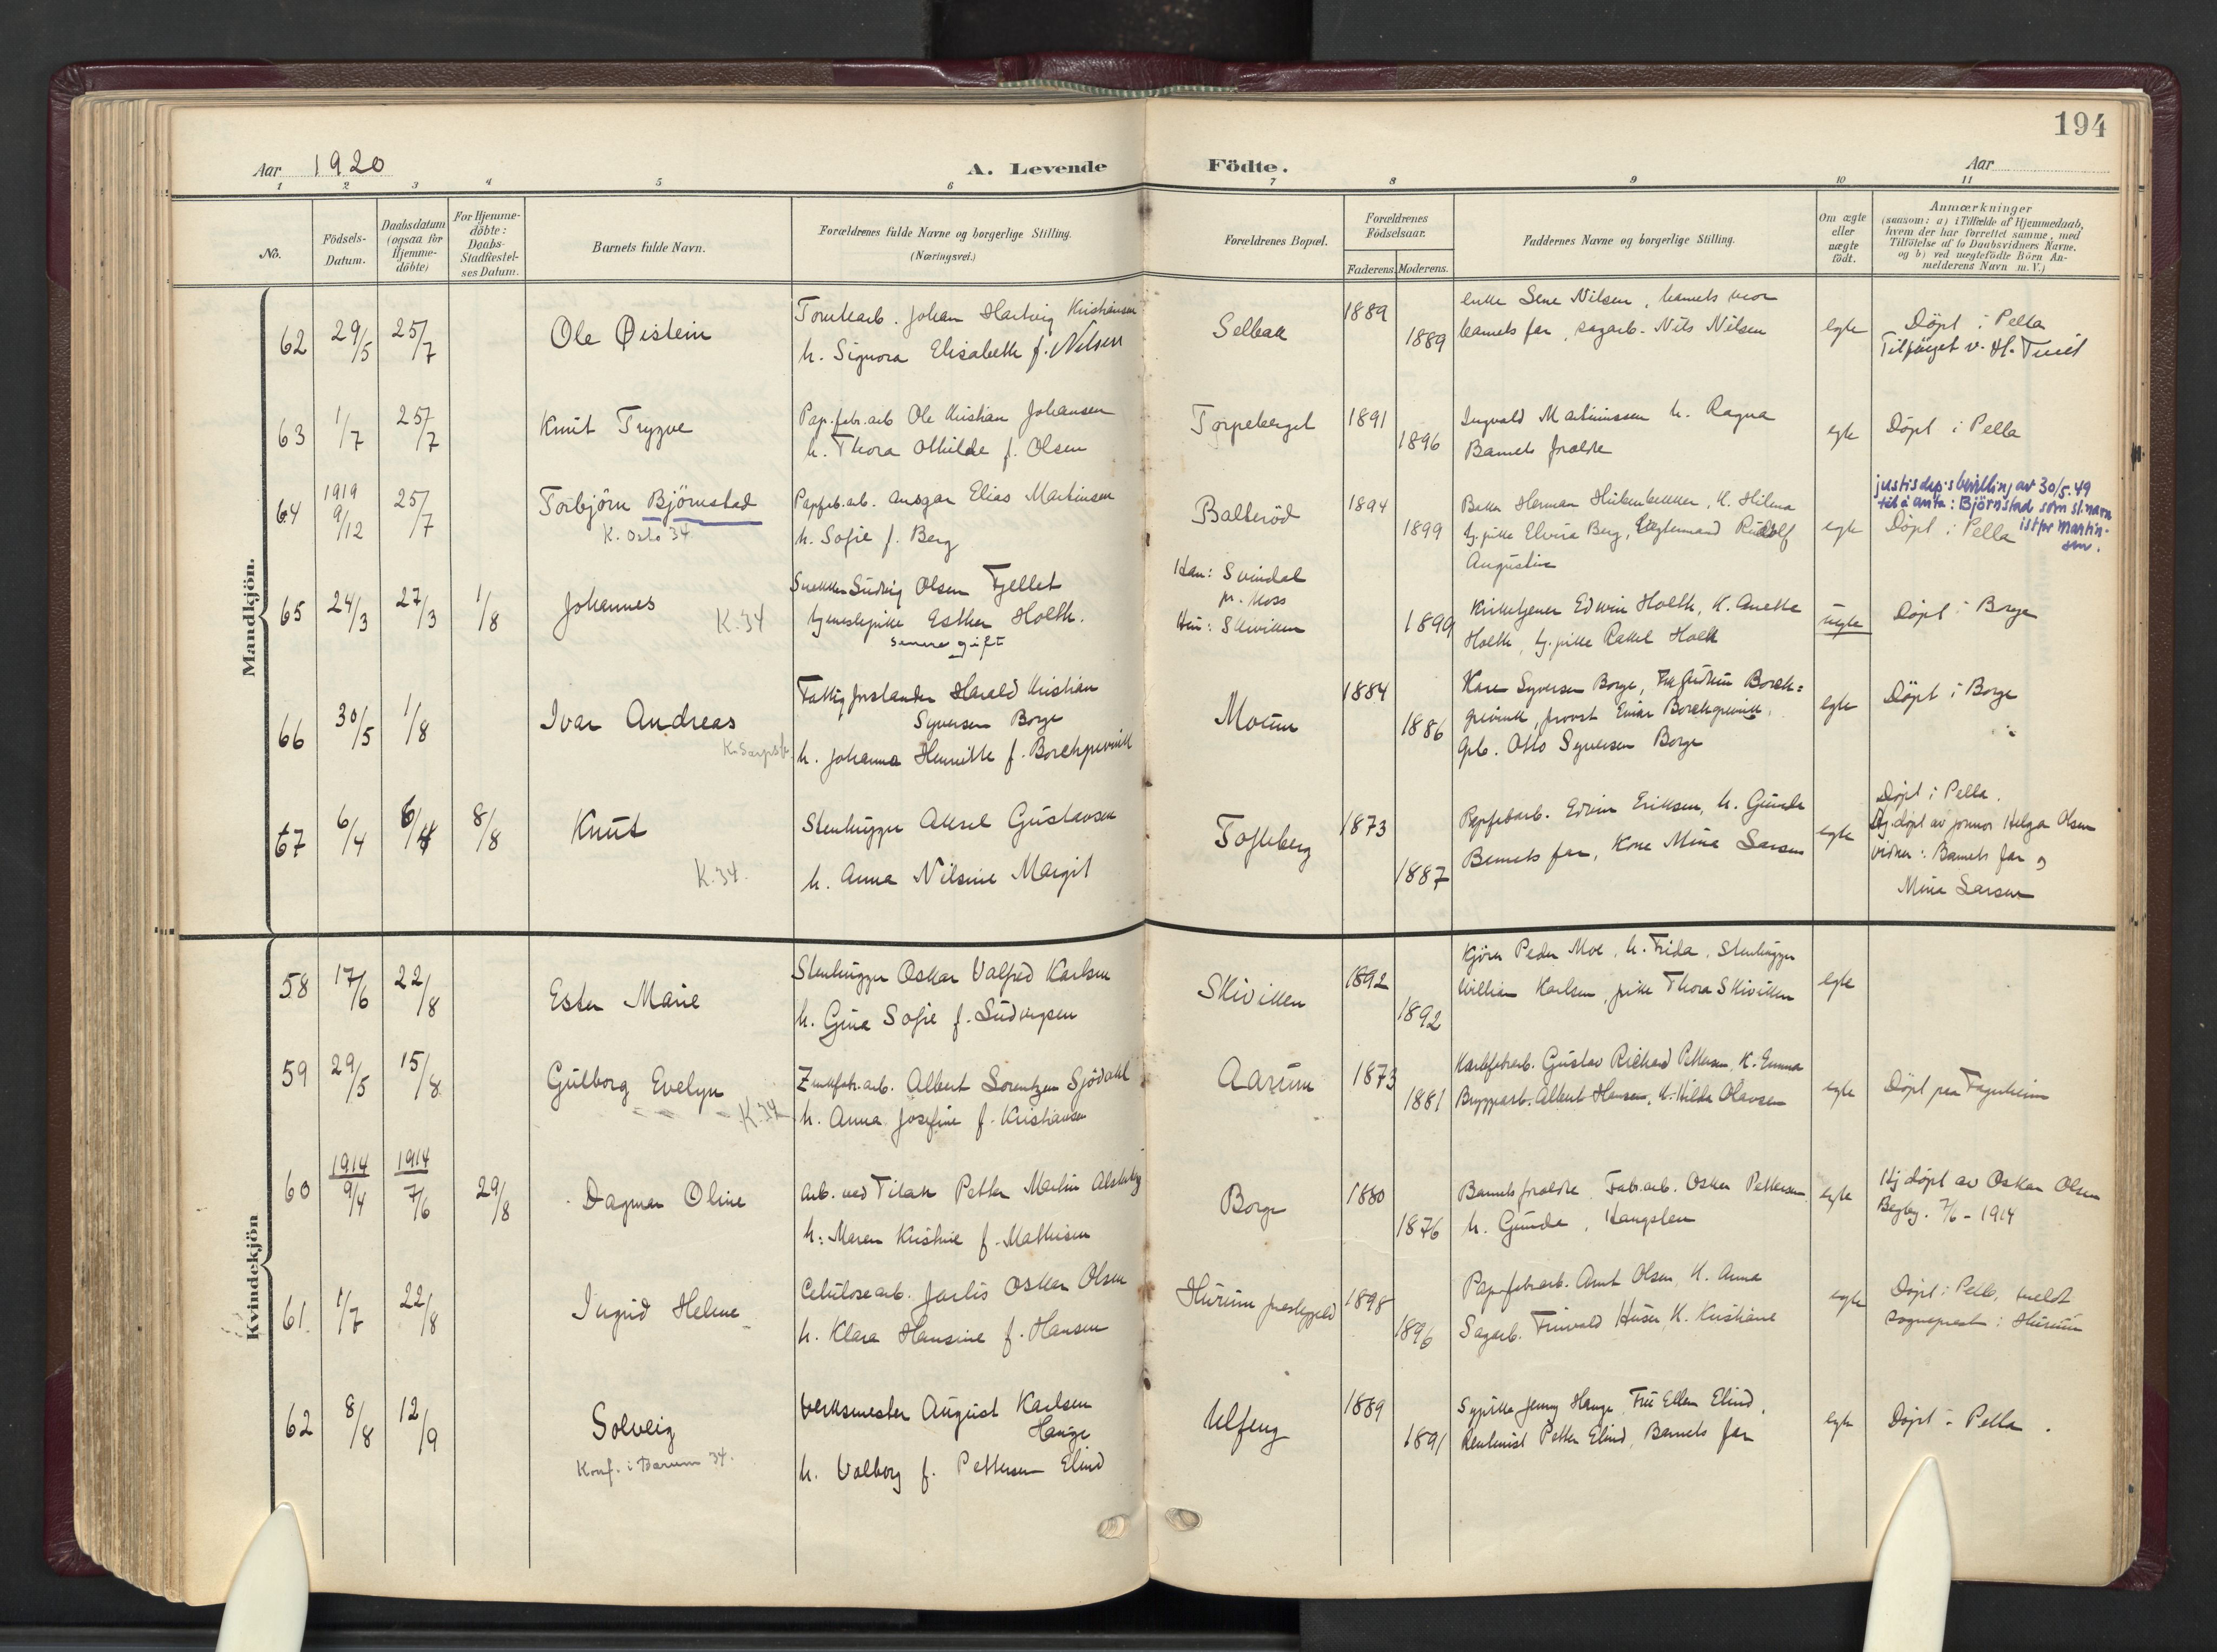 194
Aar 1920
A. Levende Födte.
Aar
1 2 3 4 5 6 7 8 9 10 11
No.
Födsels-
Datum.
Daabsdatum
(ogsaa for
Hjemme-
döbte)
For Hjemme-
döbte:
Daabs-
Stadfæstel-
ses Datum.
Barnets fulde Navn.
Forældrenes fulde Navne og borgerlige Stilling.
(Næringsvei.)
Forældrenes Bopæl.
Forældrenes
Födselsaar.
Faderens. Moderens.
Faddernes Navne og borgerlige Stilling.
Om ægte
eller
uægte
födt.
Anmærkninger
(saasom: a) i Tilfælde af Hjemmedaab,
hvem der har forrettet samme, med
Tilföielse af to Daabsvidners Navne,
og b) ved uægtefödte Börn An-
melderens Navn m. V.)
Mandkjön.
62 29/5 25/7 Ole Øistein
Johan Hartvig Kristiansen
h. Signora Elisabeth f. Nilsen
Selbak 1889 1889
enke Lene Nilsen, barnets mor
barnets far, sagarb. Nils Nilsen
egte
Döpt i Pella
63 1/7 25/7 Knut Trygve
Pap.fabr.arb Ole Kristian Johansen
h. Thora Othilde f. Olsen
Torpeberget 1891 1896
Ingvald Martinussen h. Ragna
Barnets foreldre
egte
Döpt i Pella
64 1919 9/12 25/7 Torbjörn Björnstad
K. Oslo 34
Papfab.arb. Ansgar Elias Martinsen
h. Sofie f. Berg
Balteröd 1894 1899
Herman K. Hilma
tj.pike Elvira Berg, Rudolf
Augustin
egte
justisdep.s bevilling av 30/5.49
til å anta: Björnstad som sl.navn
istfor Martin-
sen.
Döpt i Pella
65 24/3 27/3 1/8 Johannes K.34
Snekker Ludvig Olsen Fjellet
tjenestepike Esther Holth.
senere gift
Han: Svindal
pr. Moss
Hun: Skivikken
1899
Kirketjener Edwin Holth, K. Anette
Holth, tj.pike Rakel Holth
uegte
Döpt i Borge
66 30/5 1/8 Ivar Andreas
K. Sarpsb.
Fattigforstander Harald Kristian
Syversen Borge
h. Johanna Henriette f. Borchgrevink
Moum 1884 1886
Kare Syversen Borge, Borch=
grevink, provst Einar Borchgrevink,
Grb. Otto Syversen Borge
egte
Döpt i Borge
67 6/4 6/4 8/8 Knut K.34.
Stenhugger Aksel Gustavsen
h. Anna Nilsine Margit
Tofteberg 1873 1887
Papfabarb. Edvin Eriksen, h. Gunda
Barnets far, Kone Mina Larsen
egte
Döpt i Pella.
Hj.döpt av jormor Helga Olsen
vidner: Barnets far og
Mina Larsen
Kvindekjön
58 17/6 22/8 Ester Marie
Stenhugger Oskar Valfred Karlsen
h. Gina Sofie f. Ludvigsen
Skivikken 1892 1892
Kjörer Peder Moe, h. Frida, Stenhugger
William Karlsen, pike Thora Skivikken
egte
59 29/5 15/8 Gulborg Evelyn K.34
Zinkfabr.arb. Albert Lorentzen Sjödahl
h. Anna Josefine f. Kristiansen
Aarum 1873 1881
Gustav Richard Pettersen, K. Emma
Bryggearb. Albert Hansen, K. Hilda Olavsen
egte
Döpt paa Fagerheim
60 1914 9/4 1914 7/6 29/8 Dagmar Oline
Arb. ved Titan Petter Martin
h: Maren Kristine f. Mathisen
Borge 1880 1876
Barnets foreldre, Fabr.arb. Oskar Pettersen
h. Gunda, Haugsten
egte
Hj döpt av Oskar Olsen
Begby. 7/6 - 1914
61. 1/7 22/8 Ingrid Helene
Celulosearb. Jarlis Oskar Olsen
h. Klara Hansine f. Hansen
Hurum prestegjeld 1898 1896
Papfabrarb. Arnt Olsen, K. Anna
Sagarb. Huser, K. Kristiane
egte
Döpt i Pella, meldt
sogneprest i Hurum
62 8/8 12/9 Solveig
Konf. i Bærum 34.
Verksmester August Karlsen
Hauge
h. Valborg f. Pettersen Elind
Ulfeng 1889 1891
Sypike Jenny Hauge, Fru Ellen Elind,
Petter Elind, Barnets far
egte
Döpt i Pella.